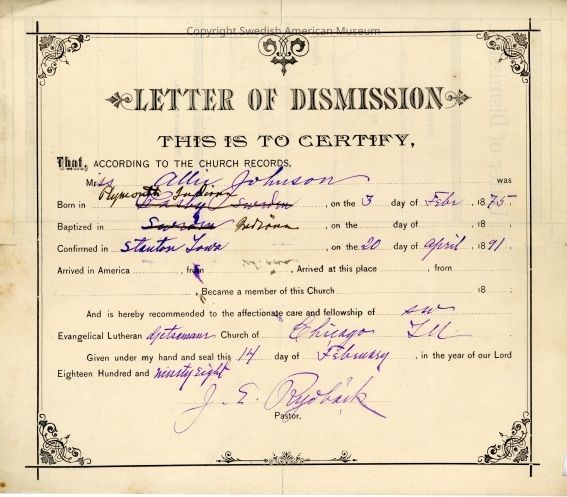 Copyright Swedish American Museum
LETTER OF DISMISSION
THIS IS TO CERTIFY,
That, ACCORDING TO THE CHURCH RECORDS,
Miss Allie Johnson was
Plymouth Indiana
Born in Sweden, on the 3 day of Febr 1875.
Baptized in Sweden Indiana, on the day of 18
Confirmed in Stanton Iowa, on the 20 day of April 1891.
Arrived in America , from , Arrived at this place , from
, Became a member of this Church 18 ;
And is hereby recommended to the affectionate care and fellowship of sw
Evangelical Lutheran Church of Chicago Ill
Given under my hand and seal this 14 day of February, in the year of our Lord
Eighteen Hundred and ninety eight
J. E. Rydbäck
Pastor.